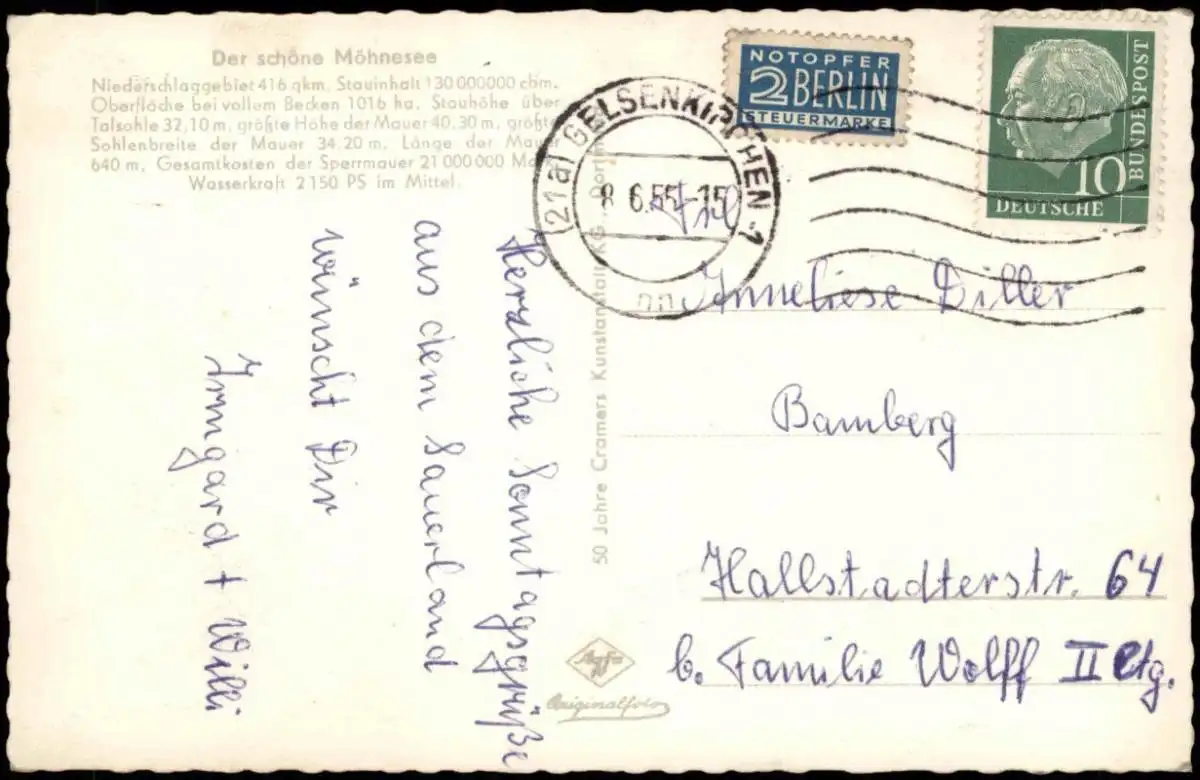 Der schöne Möhnesee
Niederschlaggebiet 416 qkm. Stauinhalt 130 000000 cbm.
Oberfläche bei vollem Becken 1016 ha. Stauhöhe über
Talsohle 32,10 m, größte Höhe der Mauer 40,30 m, größte
Sohlenbreite der Mauer 34,20 m. Länge der Mauer
640 m, Gesamtkosten der Sperrmauer 21 000 000
Wasserkraft 2 150 PS im Mittel.
NOTOPFER
2 BERLIN
STEUERMARKE
10
DEUTSCHE
BUNDESPOST
(21a) GELSENKIRCHEN 1
8 6.55-15
Herzliche Sonntagsgrüße
aus dem Sauerland
wünscht Dir
Irmgard + Willi
50 Jahre Cramers Kunstanstalt KG
Frl
Anneliese Diller
Bamberg
Hallstadterstr. 64
b. Familie Wolff II Etg.
Agfa
Originalfoto